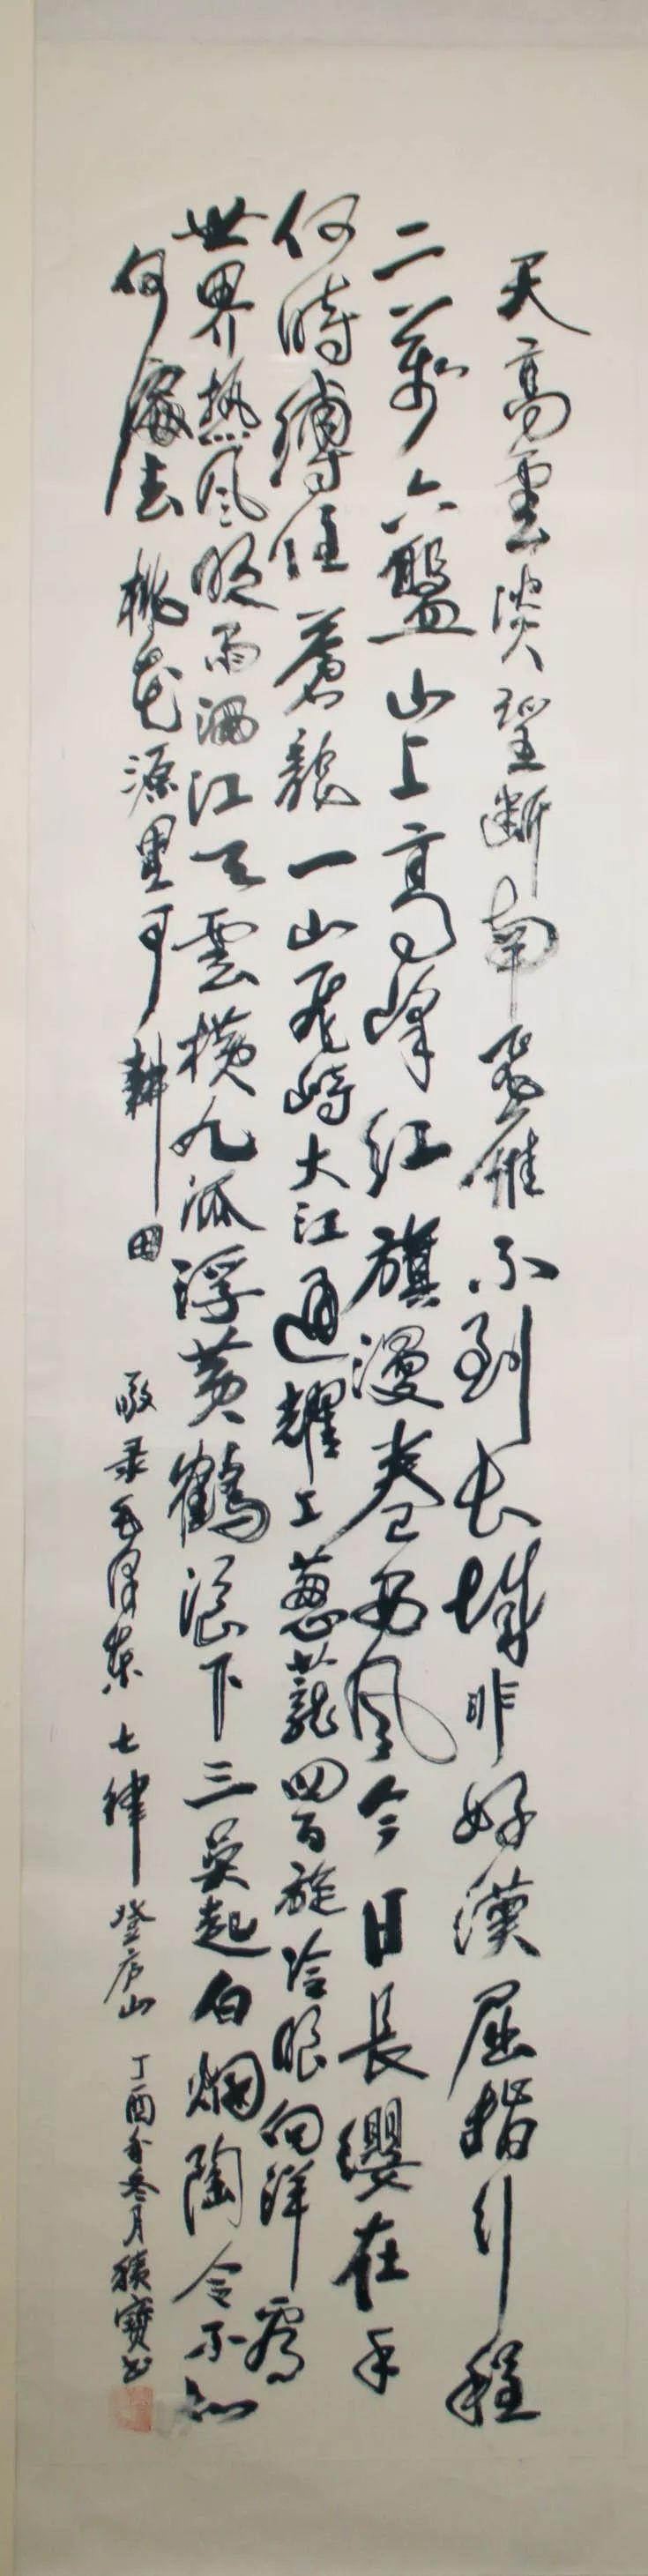 天高雲淡望断南飛雁不到长城非好漢屈指行程
二萬六盤山上高峰红旗漫卷西風今日長纓在手
何時縛住蒼龍一山飛峙大江邊躍上葱蘢四百旋冷眼向洋看
世界热风吹雨洒江天雲横九派浮黄鶴浪下三吴起白烟陶令不知
何處去桃花源里可耕田
敬录毛泽东七律登庐山丁酉年冬月 寶书